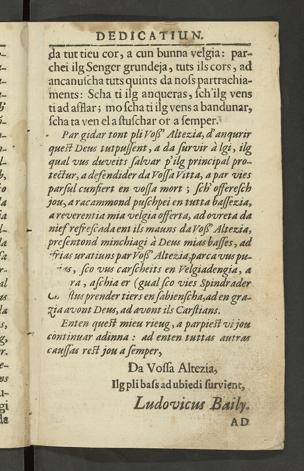 DEDICATIUN.
da tut tieu cor, a cun bunna velgia: par-
chei ilg Senger grundeja, tuts ils cors, ad
ancanuscha tuts quints da noss partrachia-
ments: Scha ti ilg anqueras, sch'ilg vens
ti ad afflar; mo scha ti ilg vens a bandunar,
scha ta ven el a stuschar or a semper.
Par gidar tont pli Voss' Altezia, d'anqurir
quest Deus tutpussent, a da survir à lgi, ilg
qual vus duveits salvar p'ilg principal pro-
tectur, a defendider da Vossa Vitta, a par vies
parsul cunfiert en vossa mort; sch' offeresch
jou, a racammond puschpei en tutta bassezia,
a reverentia mia velgia offerta, ad ovreta da
nief refrescada ent ils mauns da Voss' Altezia,
presentond minchiagi à Deus mias basses, ad
frias uratiuns par Voss' Altezia, parca vus pu-
, sco vus carscheits en Velgiadengia, a
ra, aschia er (gual sco vies Spindrader
stus prender tiers en sabienscha, ad en gra-
zia avont Deus, ad avont ils Carstians.
Enten quest mieu rieug, a parpiest vi jou
continuar adinna: ad enten tuttas autras
caussas rest jou a semper,
Da Vossa Altezia,
Ilg pli bass ad ubiedi survient,
Ludovicus Baily.
AD